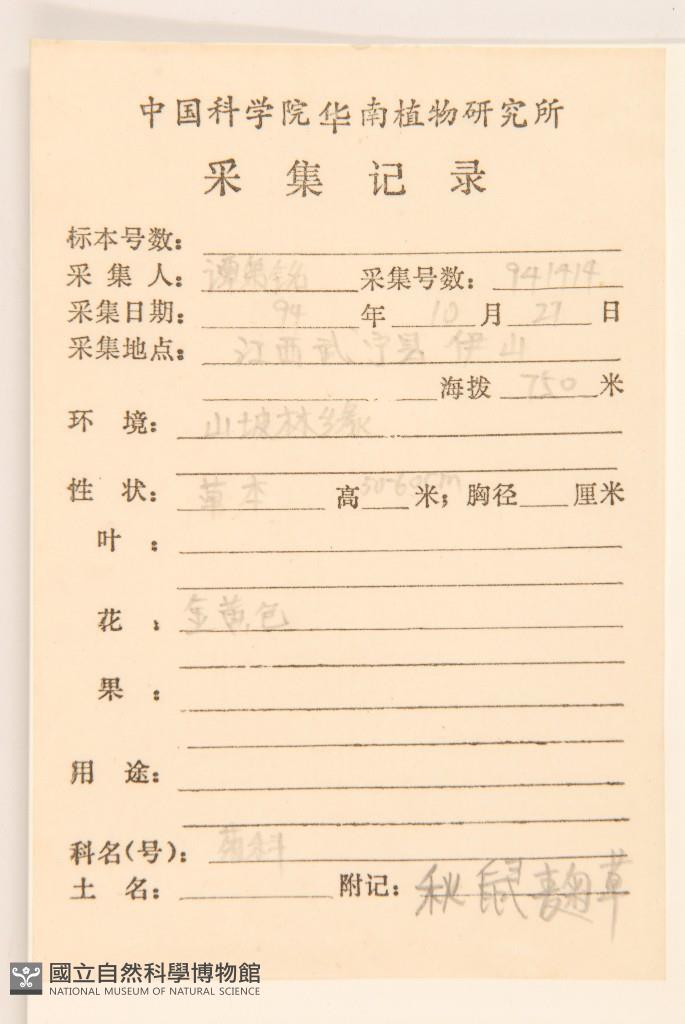 中国科学院华南植物研究所
采集记录
标本号数：
采集人：谭策铭 采集号数：941414
采集日期：94年10月27日
采集地点：江西武宁县 伊山
海拨 750 米
环 境：山坡林缘
性 状：草本 高 50-60cm 米；胸径 厘米
叶：
花：金黄色
果：
用 途：
科名(号)：菊科
土 名： 附记：秋鼠麴草
國立自然科學博物館
NATIONAL MUSEUM OF NATURAL SCIENCE